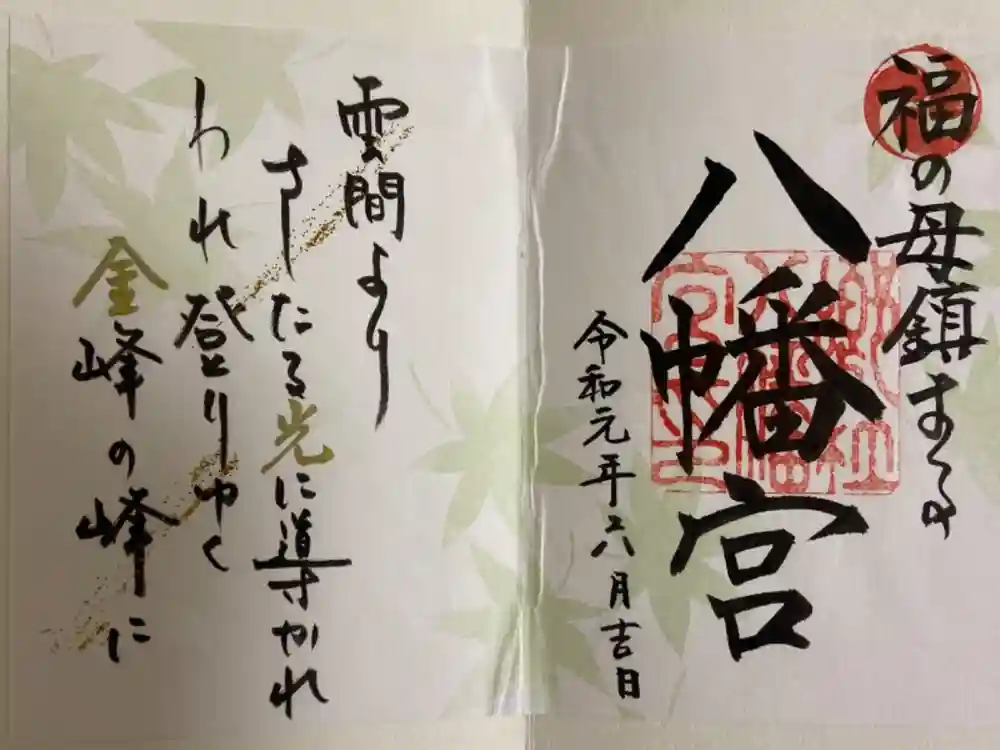 福の母鎮まる
八幡宮
令和元年六月吉日
雲間より
さしたる光に導かれ
われ登りゆく
金峰の峰に